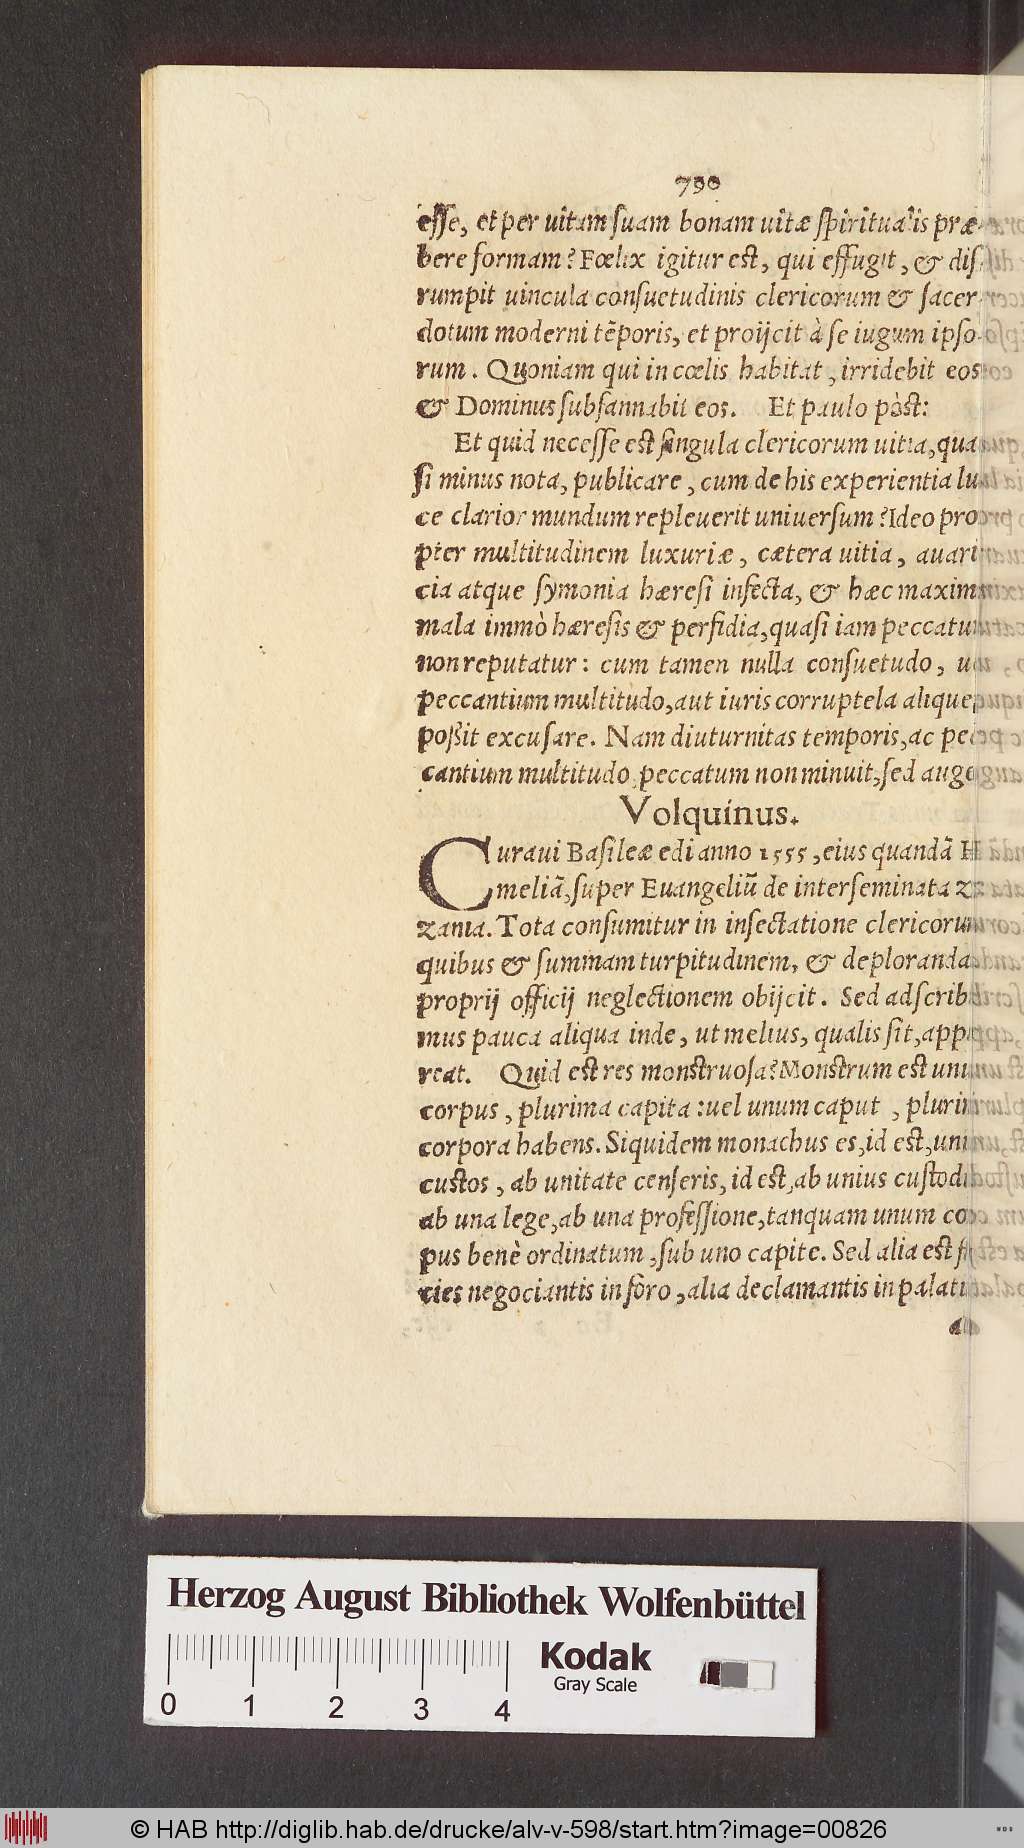 790
eſſe, et per uitam ſuam bonam uitæ ſpiritualis præ-
bere formam? Fœlix igitur est, qui effugit, & diſ-
rumpit uincula conſuetudinis clericorum & ſacer-
dotum moderni tēporis, et proijcit à ſe iugum ipſo-
rum. Quoniam qui in cœlis habitat, irridebit eos
& Dominus ſubſannabit eos. Et paulo pòst:
Et quid neceſſe est ſingula clericorum uitia, qua
ſi minus nota, publicare, cum de his experientia lu
ce clarior mundum repleuerit uniuerſum? Ideo pro
pter multitudinem luxuriæ, cætera uitia, auari
cia atque ſymonia hæreſi infecta, & hæc maxima
mala immò hæreſis & perfidia, quaſi iam peccatum
non reputatur: cum tamen nulla conſuetudo,
peccantium multitudo, aut iuris corruptela aliquem
poßit excuſare. Nam diuturnitas temporis, ac pec
cantium multitudo peccatum non minuit, ſed auget
Volquinus.
Curaui Baſileæ edi anno 1555, eius quandā H
meliā, ſuper Euangeliū de interſeminata zi
zania. Tota conſumitur in inſectatione clericorum
quibus & ſummam turpitudinem, & deplorandam
proprij officij neglectionem obijcit. Sed adſcribe
mus pauca aliqua inde, ut melius, qualis ſit, appa
reat. Quid est res monstruoſa? Monstrum est unum
corpus, plurima capita: uel unum caput, plurima
corpora habens. Siquidem monachus es, id est, unius
custos, ab unitate cenſeris, id est, ab unius custodia
ab una lege, ab una profeſſione, tanquam unum cor
pus benè ordinatum, ſub uno capite. Sed alia est fa
cies negociantis in foro, alia declamantis in palatio
Herzog August Bibliothek Wolfenbüttel
Kodak
Gray Scale
0 1 2 3 4
© HAB http://diglib.hab.de/drucke/alv-v-598/start.htm?image=00826